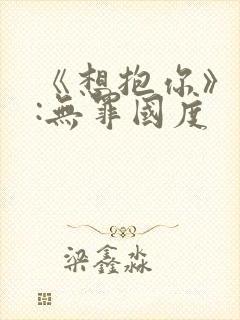 《想抱你》
:無罪國度
梁鑫淼